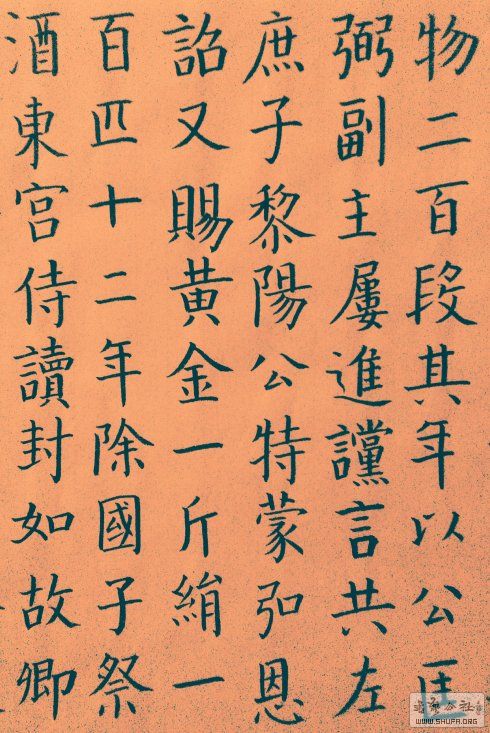 物二百段其年以公匡
弼副主屢進讜言共左
庶子黎陽公特蒙弘恩
詔又賜黃金一斤絹一
百匹十二年除國子祭
酒東宮侍讀封如故卿
WWW.SHUFA.ORG